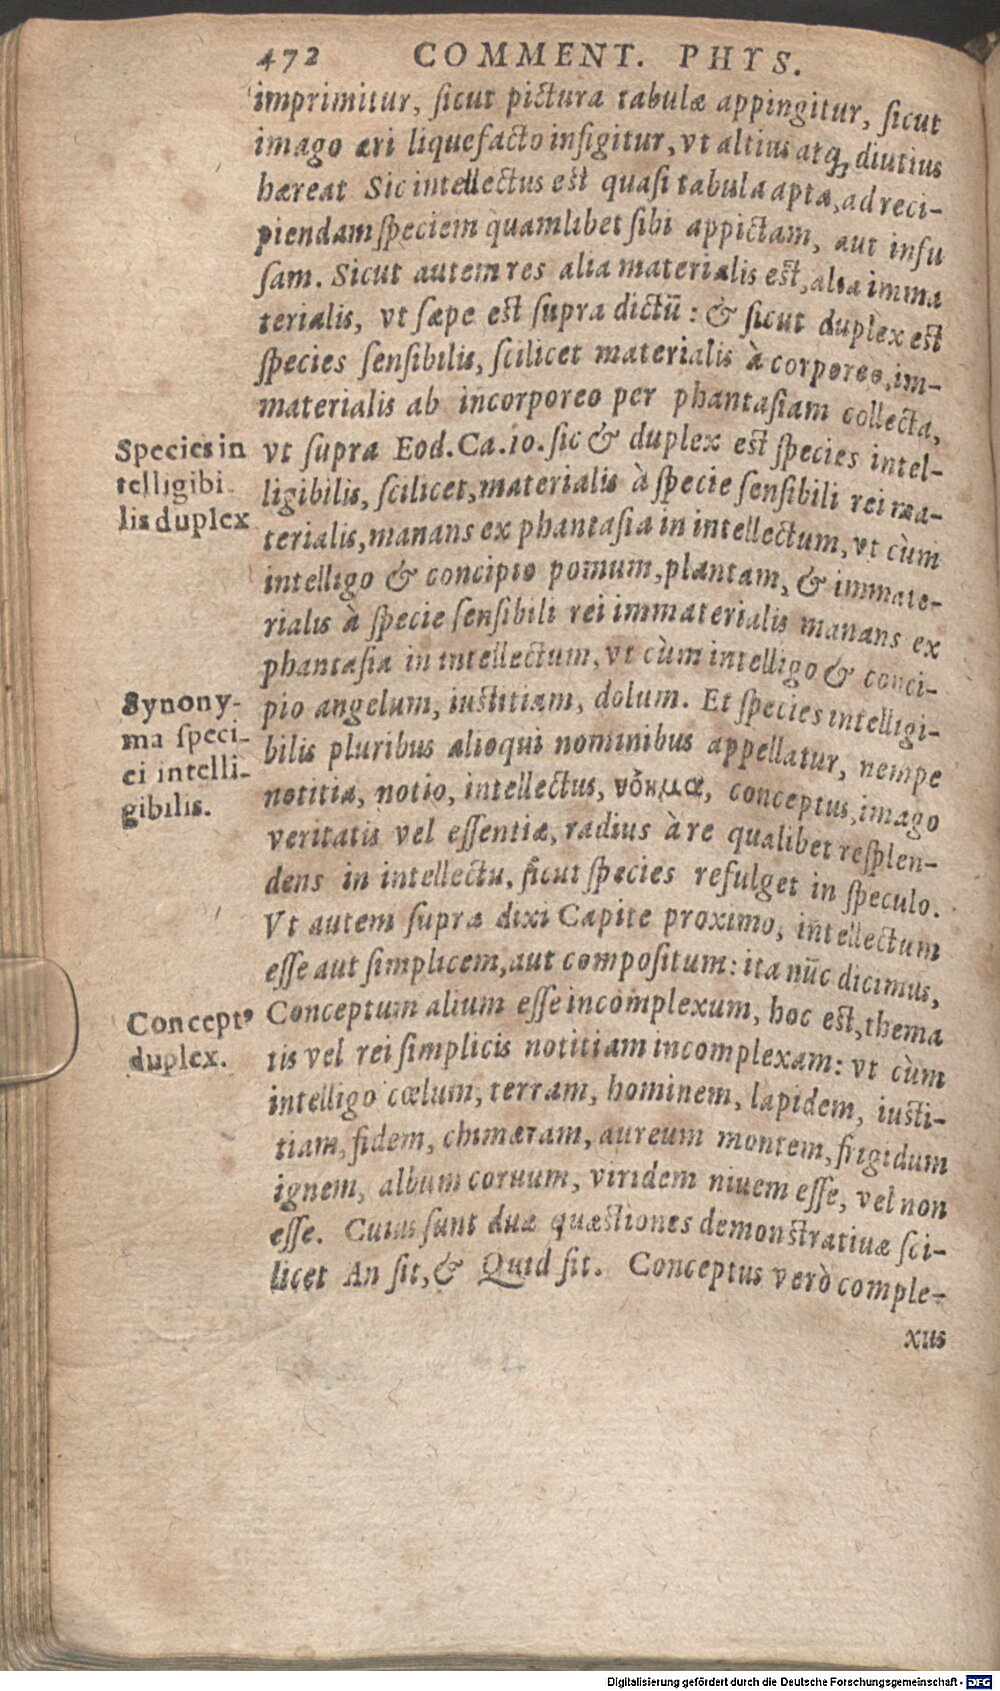 472 COMMENT. PHYS.
imprimitur, sicut pictura tabulæ appingitur, sicut
imago æri liquefacto infigitur, vt altius atq; diutius
hæreat Sic intellectus est quasi tabula apta, ad reci-
piendam speciem quamlibet sibi appictam, aut infu
sam. Sicut autem res alia materialis est, alia imma
terialis, vt sæpe est supra dictũ: & sicut duplex est
species sensibilis, scilicet materialis à corporeo, im-
materialis ab incorporeo per phantasiam collecta,
Species in
telligibi
lis duplex
vt supra Eod. Ca. 10. sic & duplex est species intel-
ligibilis, scilicet, materialis à specie sensibili rei ma-
terialis, manans ex phantasia in intellectum, vt cùm
intelligo & concipio pomum, plantam, & immate-
rialis à specie sensibili rei immaterialis manans ex
phantasia in intellectum, vt cùm intelligo & conci-
Synony-
ma speci-
ei intelli-
gibilis.
pio angelum, iustitiam, dolum. Et species intelligi-
bilis pluribus alioqui nominibus appellatur, nempe
notitia, notio, intellectus, νόημα, conceptus, imago
veritatis vel essentiæ, radius à re qualibet resplen-
dens in intellectu, sicut species refulget in speculo.
Vt autem supra dixi Capite proximo, intellectum
esse aut simplicem, aut compositum: ita nũc dicimus,
Concept⁹
duplex.
Conceptum alium esse incomplexum, hoc est, thema
tis vel rei simplicis notitiam incomplexam: vt cùm
intelligo cœlum, terram, hominem, lapidem, iusti-
tiam, fidem, chimæram, aureum montem, frigidum
ignem, album coruum, viridem niuem esse, vel non
esse. Cuius sunt duæ quæstiones demonstratiuæ sci-
licet An sit, & Quid sit. Conceptus verò comple-
xus
Digitalisierung gefördert durch die Deutsche Forschungsgemeinschaft - DFG